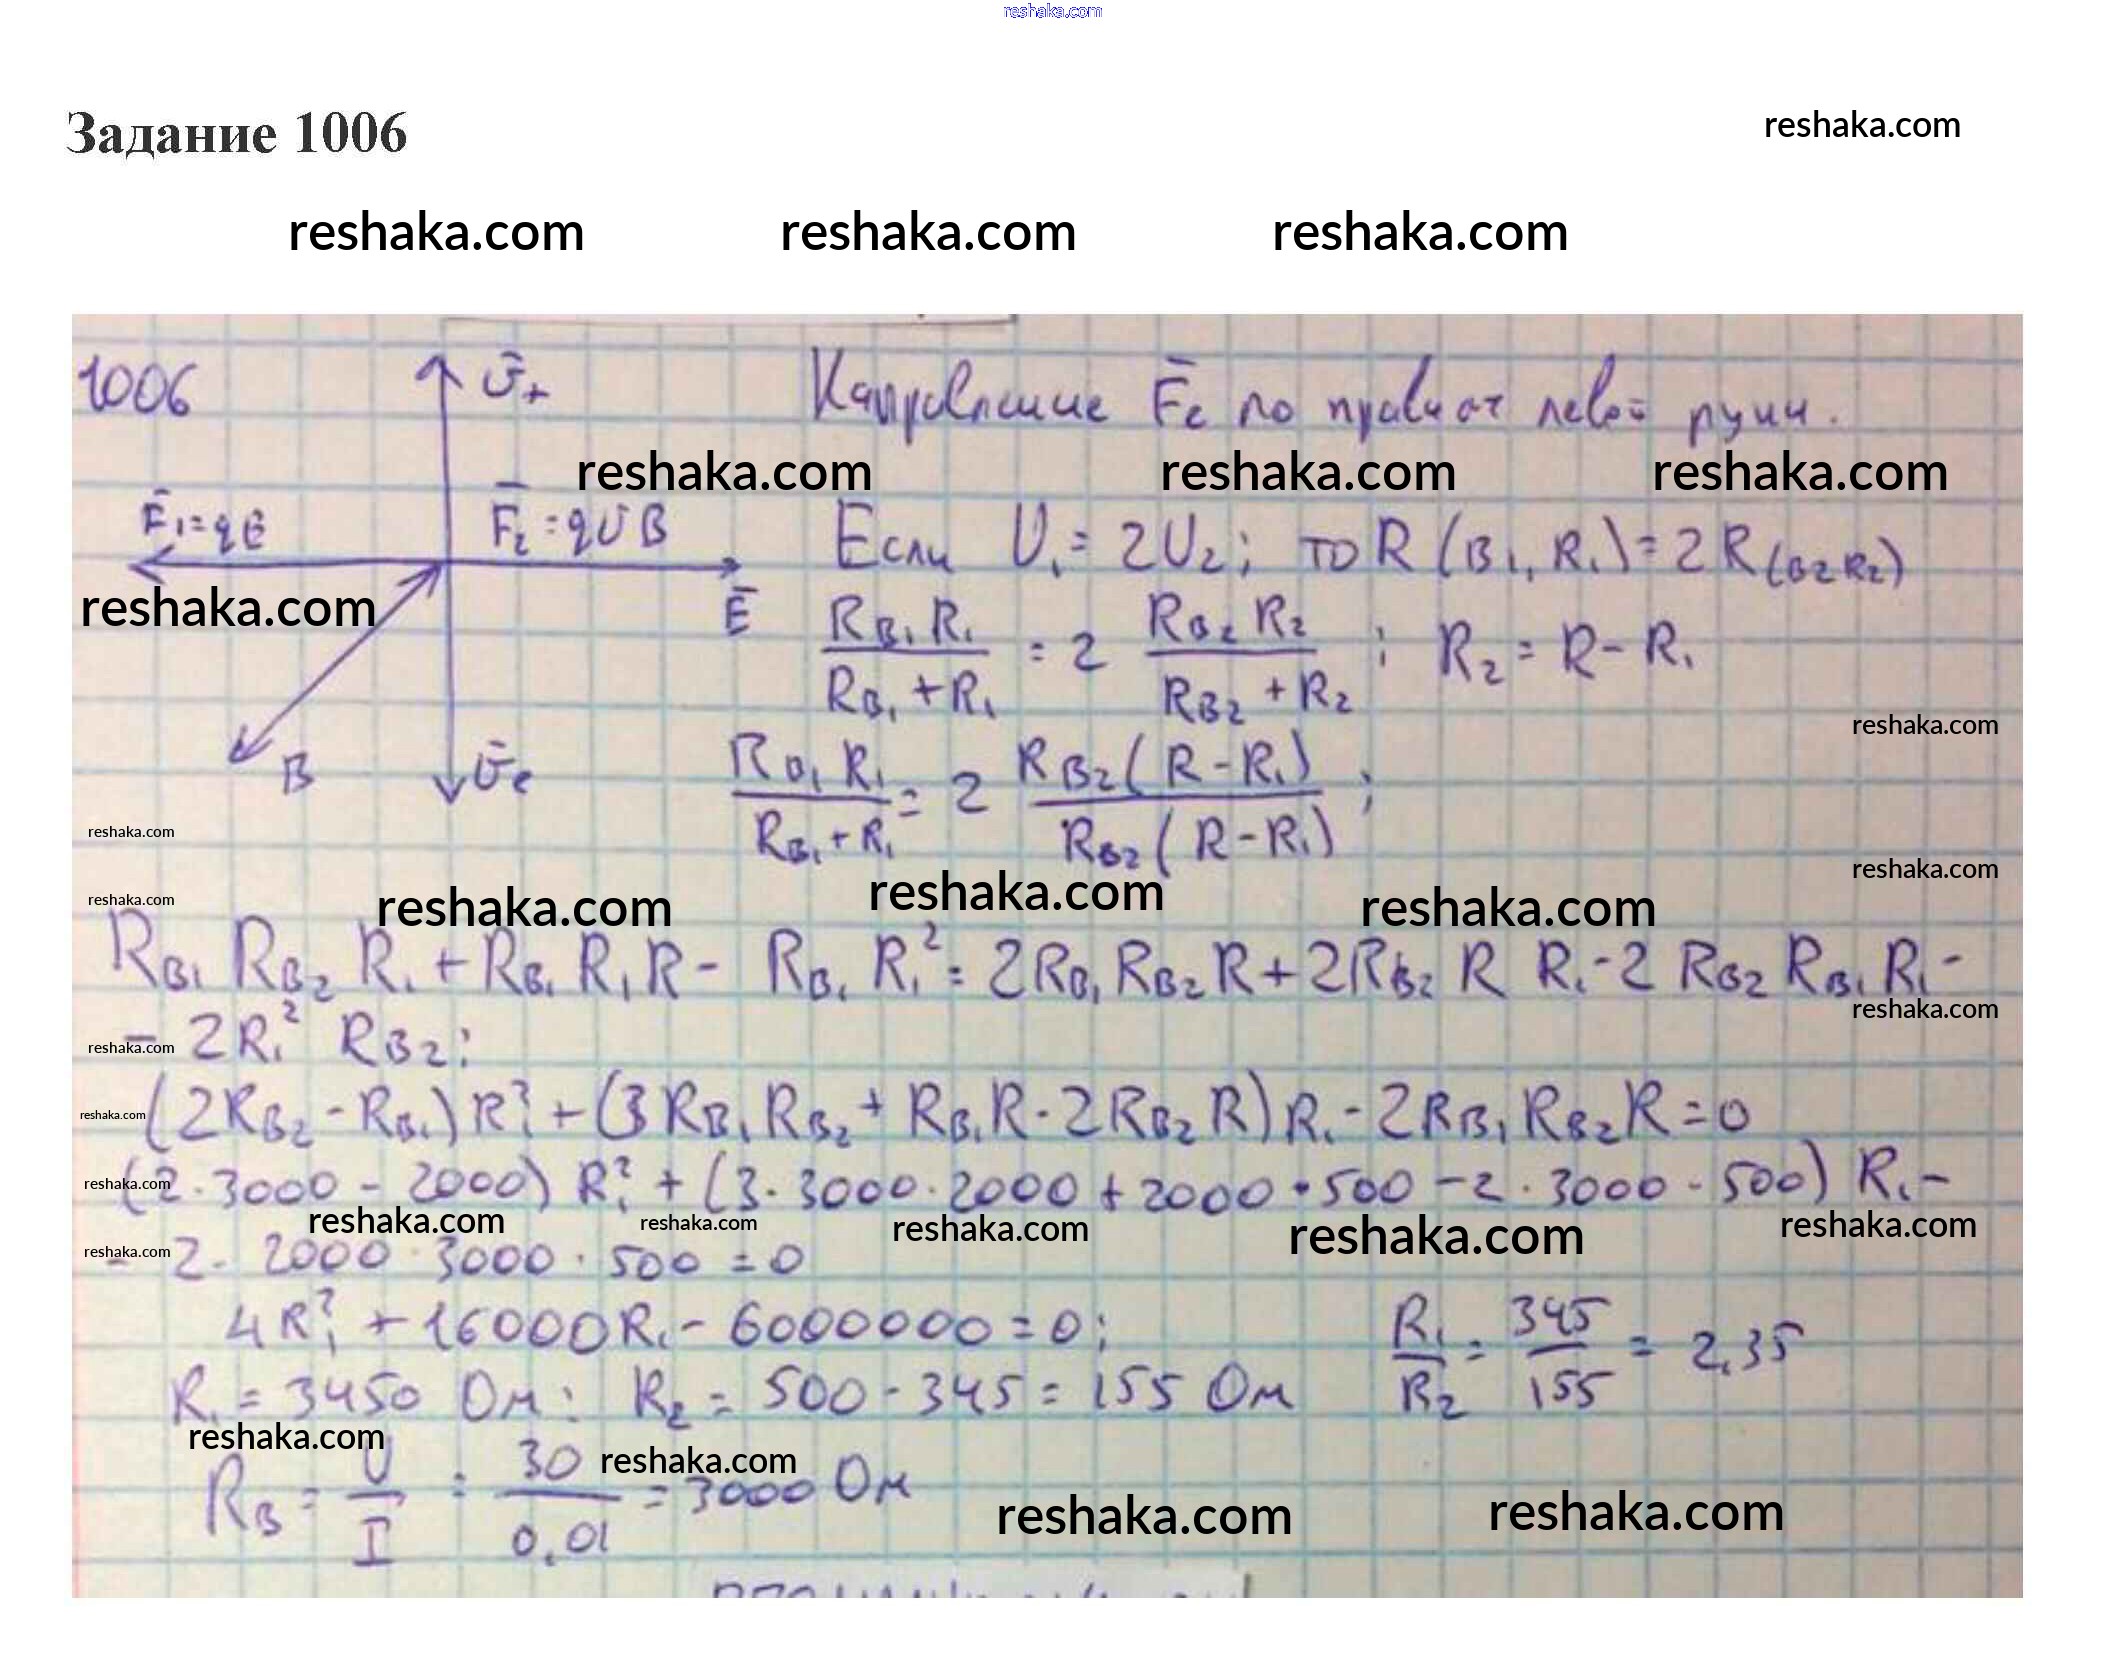 reshaka.com
Задание 1006
reshaka.com
reshaka.com reshaka.com reshaka.com
1006
Ʋ+
Направление Fе по правилу левой руки.
reshaka.com reshaka.com reshaka.com
F₁=qE
F₂=qUB
Если U₁=2U₂; то R(B₁,R₁)=2R(B2R2)
reshaka.com
E
RB₁R₁/RB₁+R₁ = 2 RB₂R₂/RB₂+R₂ ; R₂=R-R₁
reshaka.com
B
Ʋe
RB₁R₁/RB₁+R₁ = 2 RB₂(R-R₁)/RB₂(R-R₁) ;
reshaka.com
reshaka.com
reshaka.com
reshaka.com reshaka.com reshaka.com
RB₁RB₂R₁+RB₁R₁R- RB₁R₁²=2RB₁RB₂R+2RB₂RR₁-2RB₂RB₁R₁-
reshaka.com
-2R₁²RB₂;
reshaka.com
(2RB₂-RB₁)R₁²+(3RB₁RB₂+RB₁R-2RB₂R)R₁-2RB₁RB₂R=0
reshaka.com
(2·3000-2000)R₁²+(3·3000·2000+2000·500-2·3000·500)R₁-
reshaka.com
reshaka.com reshaka.com reshaka.com reshaka.com reshaka.com
- 2·2000·3000·500=0
reshaka.com
4R₁²+16000R₁-6000000=0;
R₁/R₂ = 345/155 = 2,35
R₁=3450 Ом: R₂=500-345=155 Ом
reshaka.com
reshaka.com
RB = U/I = 30/0,01 = 3000 Ом
reshaka.com reshaka.com